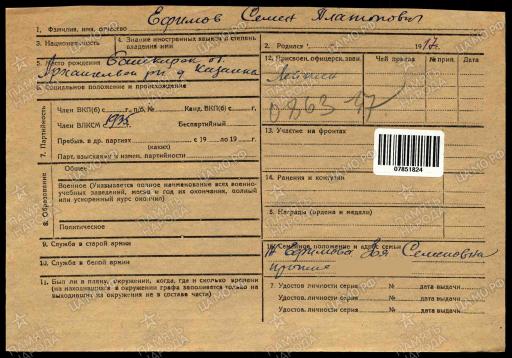 1. Фамилия, имя, отчество Ефимов Семен Платонович
3. Национальность
4. Знание иностранных языков и степень владения ими
2. Родился 1917 г.
5. Место рождения Башкирск
Архангельский д. Казанка
6. Социальное положение и происхождение
12. Присвоен. офицерск. зван.
Чей приказ № прик. Дата
0863 47
7. Партийность
Член ВКП(б) с г. п/б. № Канд. ВКП(б) с г.
Член ВЛКСМ 1935 Беспартийный
Пребыв. в др. партиях с 19 по 19 г.
(каких)
Парт. взыскания и измен. партийности
13. Участие на фронтах
07851824
8. Образование
Общее
Военное (Указывается полное наименование всех военно-учебных заведений, место и год их окончания, полный или ускоренный курс окончил)
Политическое
14. Ранения и контузии
Награды (ордена и медали)
9. Служба в старой армии
10. Служба в белой армии
11. Был ли в плену, окружении, когда, где и сколько времени
(на находившихся в окружении графа заполняется только на
выходивших из окружения не в составе части)
16. Семейное положение и адрес семьи
Ефимова Семеновна
7. Удостов. личности серия № дата выдачи
Удостов. личности серия № дата выдачи
Удостов. личности серия № дата выдачи
ЦАМО.РФ